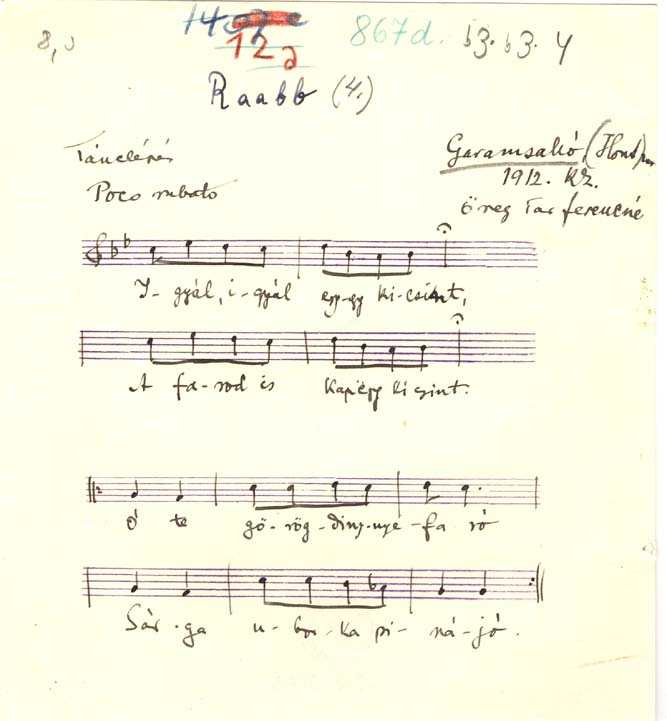 8,
12
867d. b3. b3. 4
Raabb (4.)
Garamsalló, (Hont)
Poco rubato
1912. KZ.
Öreg Tar Ferencné
I-gyál, i-gyál egy-gy ki-csint,
A fa-rod is kap egy ki csint.
Ó te gö-rög-diny-nye-fa ró
Sár-ga u-bor-ka pi-ná-jó.